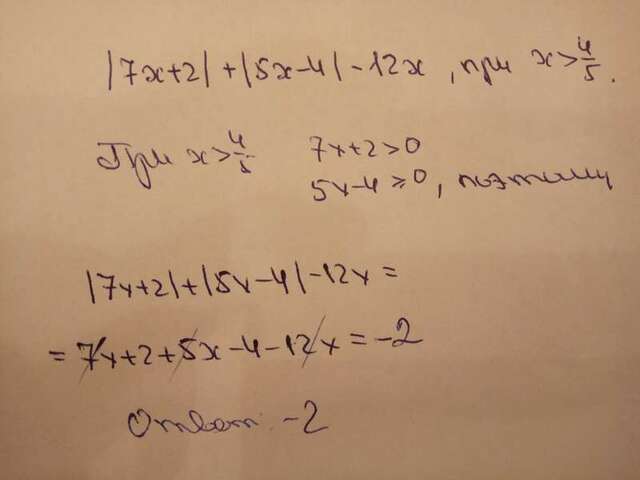 |7x+2|+|5x-4|-12x, при x>4/5.
При x>4/5 7x+2>0
5x-4≥0, поэтому
|7x+2|+|5x-4|-12x=
=7x+2+5x-4-12x=-2
Ответ: -2